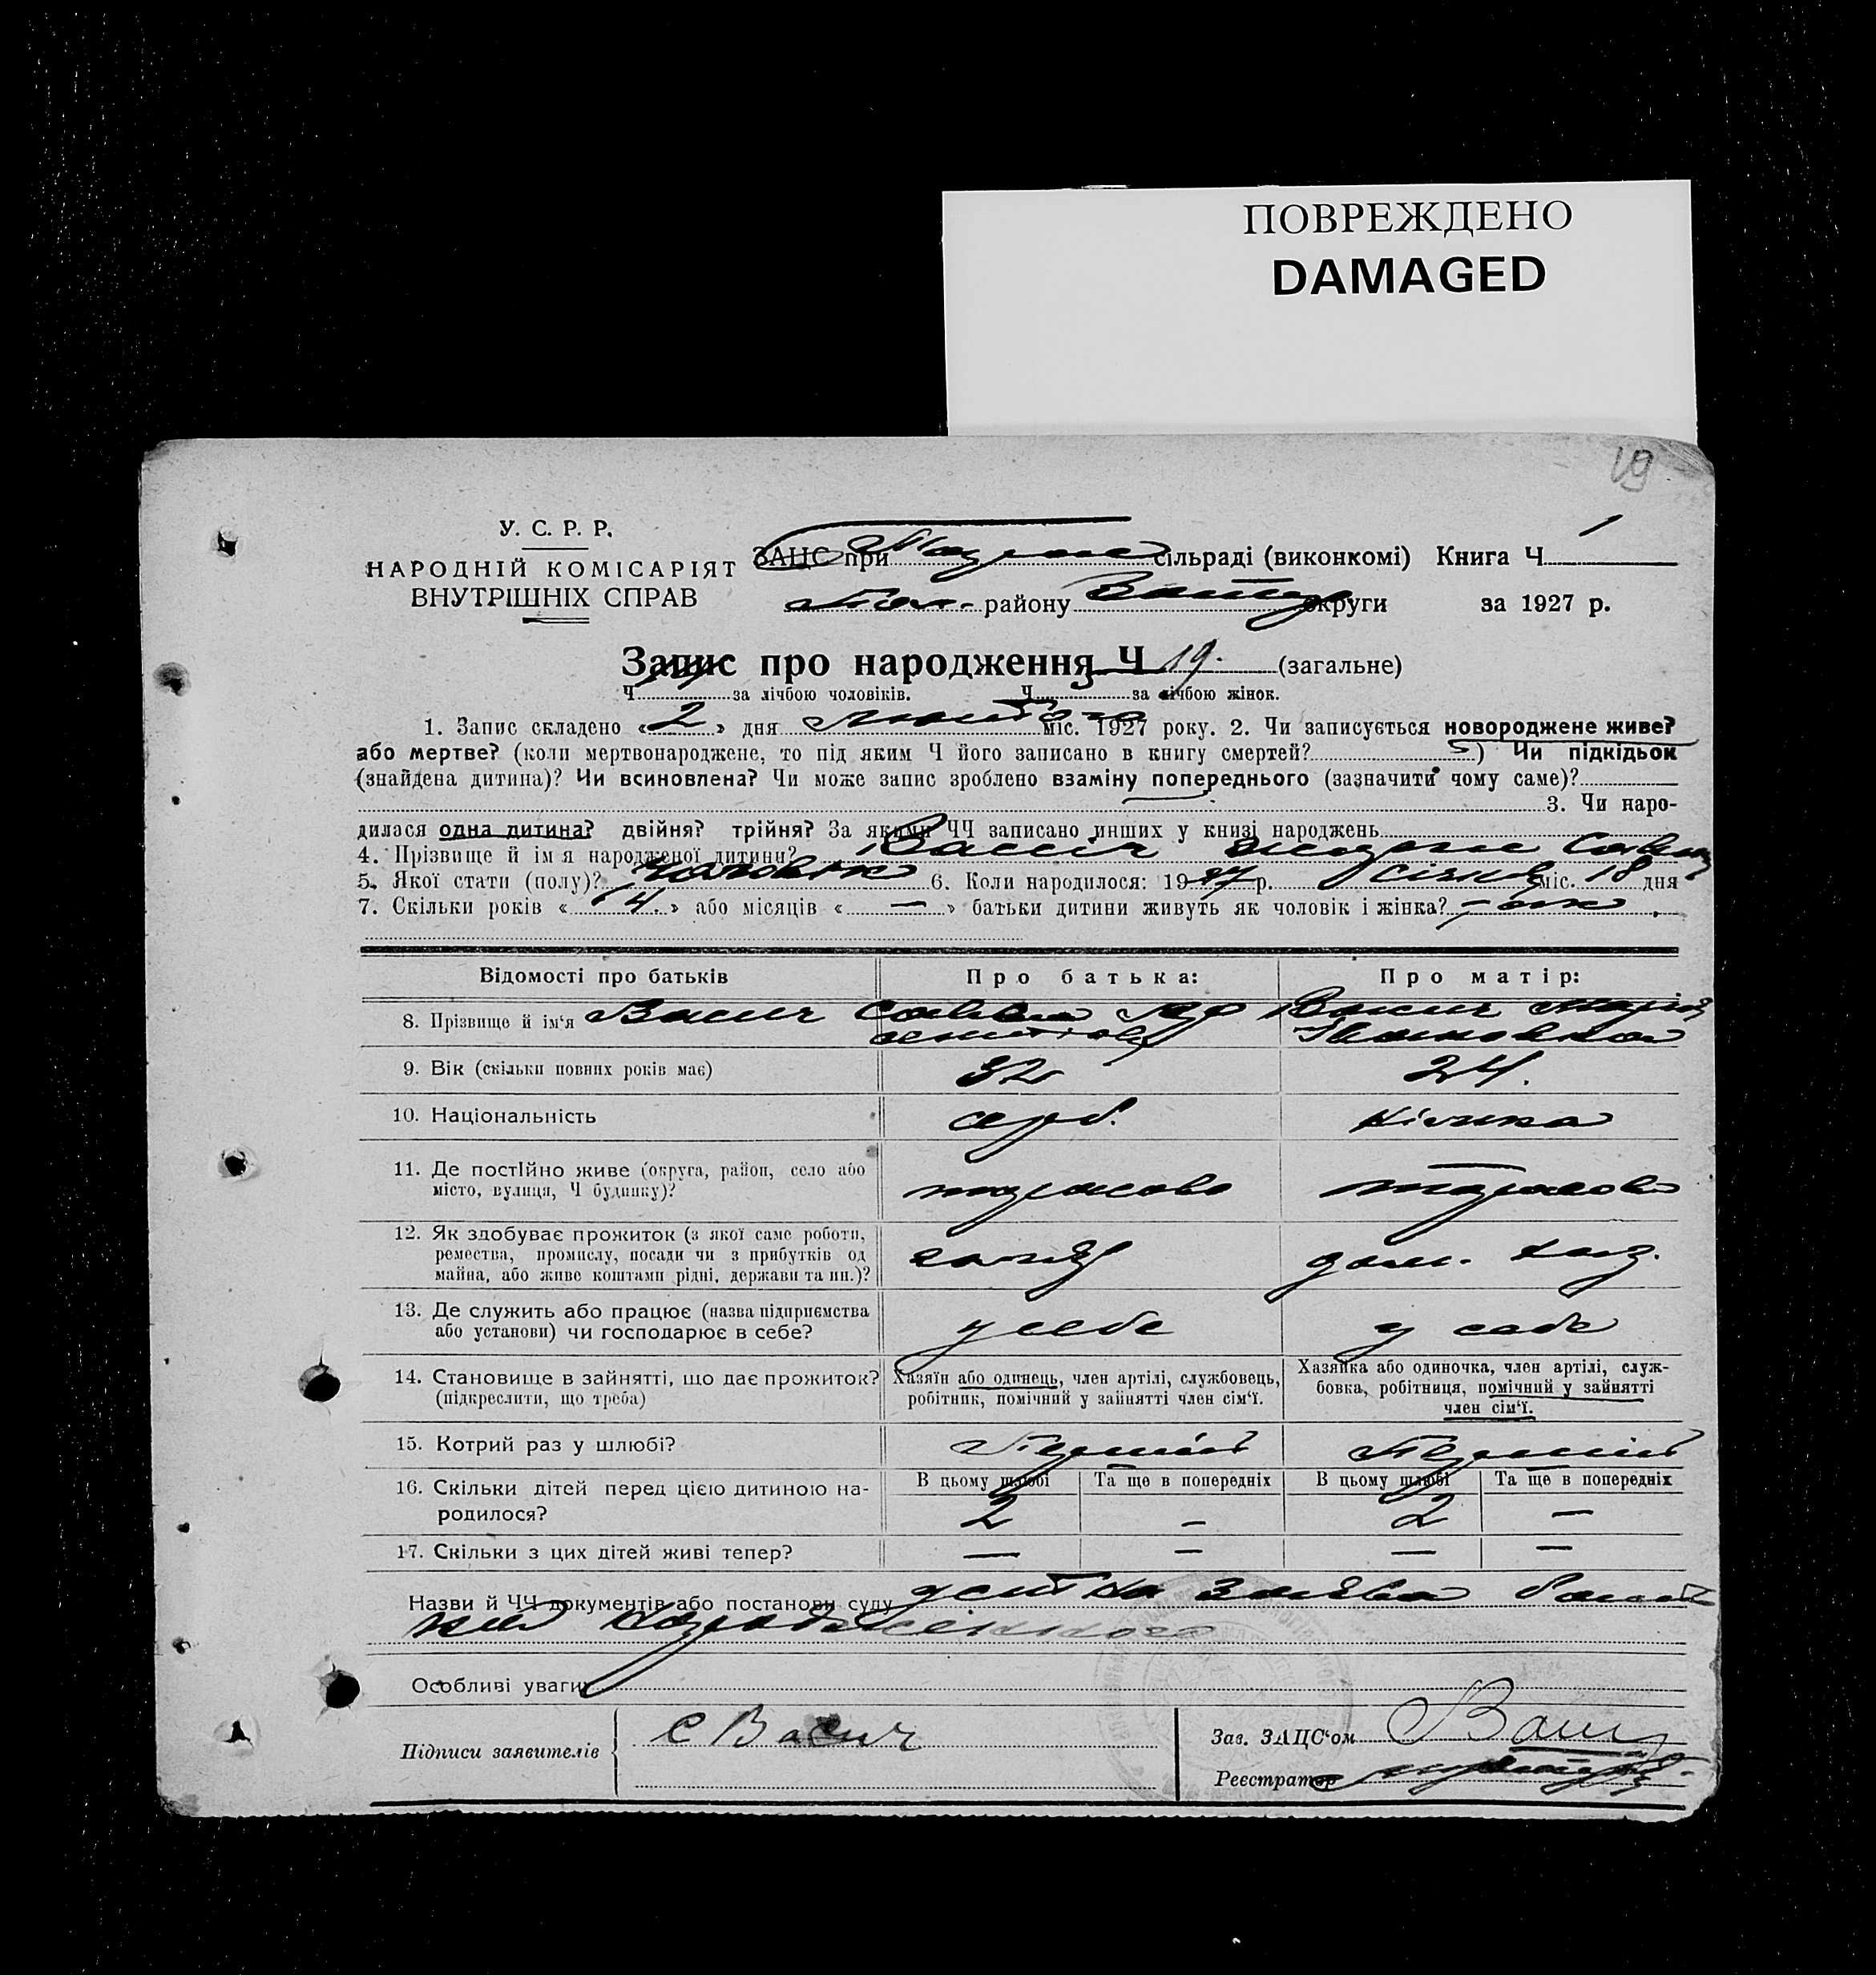 ПОВРЕЖДЕНО
DAMAGED
19
У. С. Р. Р.
НАРОДНІЙ КОМІСАРІЯТ
ВНУТРІШНІХ СПРАВ
ЗАЦС при сільраді (виконкомі) Книга Ч. 1
району округи за 1927 р.
Запис про народження Ч 19. (загальне)
Ч. за лічбою чоловіків. Ч. за лічбою жінок.
1. Запис складено « 2 » дня лютого міс. 1927 року. 2. Чи записується новороджене живе?
або мертве? (коли мертвонароджене, то під яким Ч його записано в книгу смертей? ) Чи підкідьок
(знайдена дитина)? Чи всиновлена? Чи може запис зроблено взаміну попереднього (зазначити чому саме)?
3. Чи наро-
дилася одна дитина? двійня? трійня? За якими ЧЧ записано инших у книзі народжень
4. Прізвище й ім я народженої дитини? Васич
5. Якої стати (полу)? чоловік 6. Коли народилося: 1927 р. Січня міс. 18 дня
7. Скільки років « 4. » або місяців « — » батьки дитини живуть як чоловік і жінка?
Відомості про батьків
Про батька:
Про матір:
8. Прізвище й ім'я Васич Савва Васич Марія
Івановна
9. Вік (скільки повних років має) 32 24.
10. Національність серб.
11. Де постійно живе (округа, район, село або
місто, вулиця, Ч будинку)?
12. Як здобуває прожиток (з якої саме роботи,
ремества, промислу, посади чи з прибутків од
майна, або живе коштами рідні, держави та ин.)? дом. хаз.
13. Де служить або працює (назва підприємства
або установи) чи господарює в себе? у себе у себе
14. Становище в зайнятті, що дає прожиток?
(підкреслити, що треба)
Хазяїн або одинець, член артілі, службовець,
робітник, помічний у зайнятті член сім'ї.
Хазяйка або одиночка, член артілі, служ-
бовка, робітниця, помічний у зайнятті
член сім'ї.
15. Котрий раз у шлюбі? Перший Перший
16. Скільки дітей перед цією дитиною на-
родилося?
В цьому шлюбі Та ще в попередніх В цьому шлюбі Та ще в попередніх
2 — 2 —
17. Скільки з цих дітей живі тепер? — — — —
Назви й ЧЧ документів або постанови суду устна заява
Особливі уваги
Підписи заявителів
С Васич
Зав. ЗАЦС'ом
Реєстратор